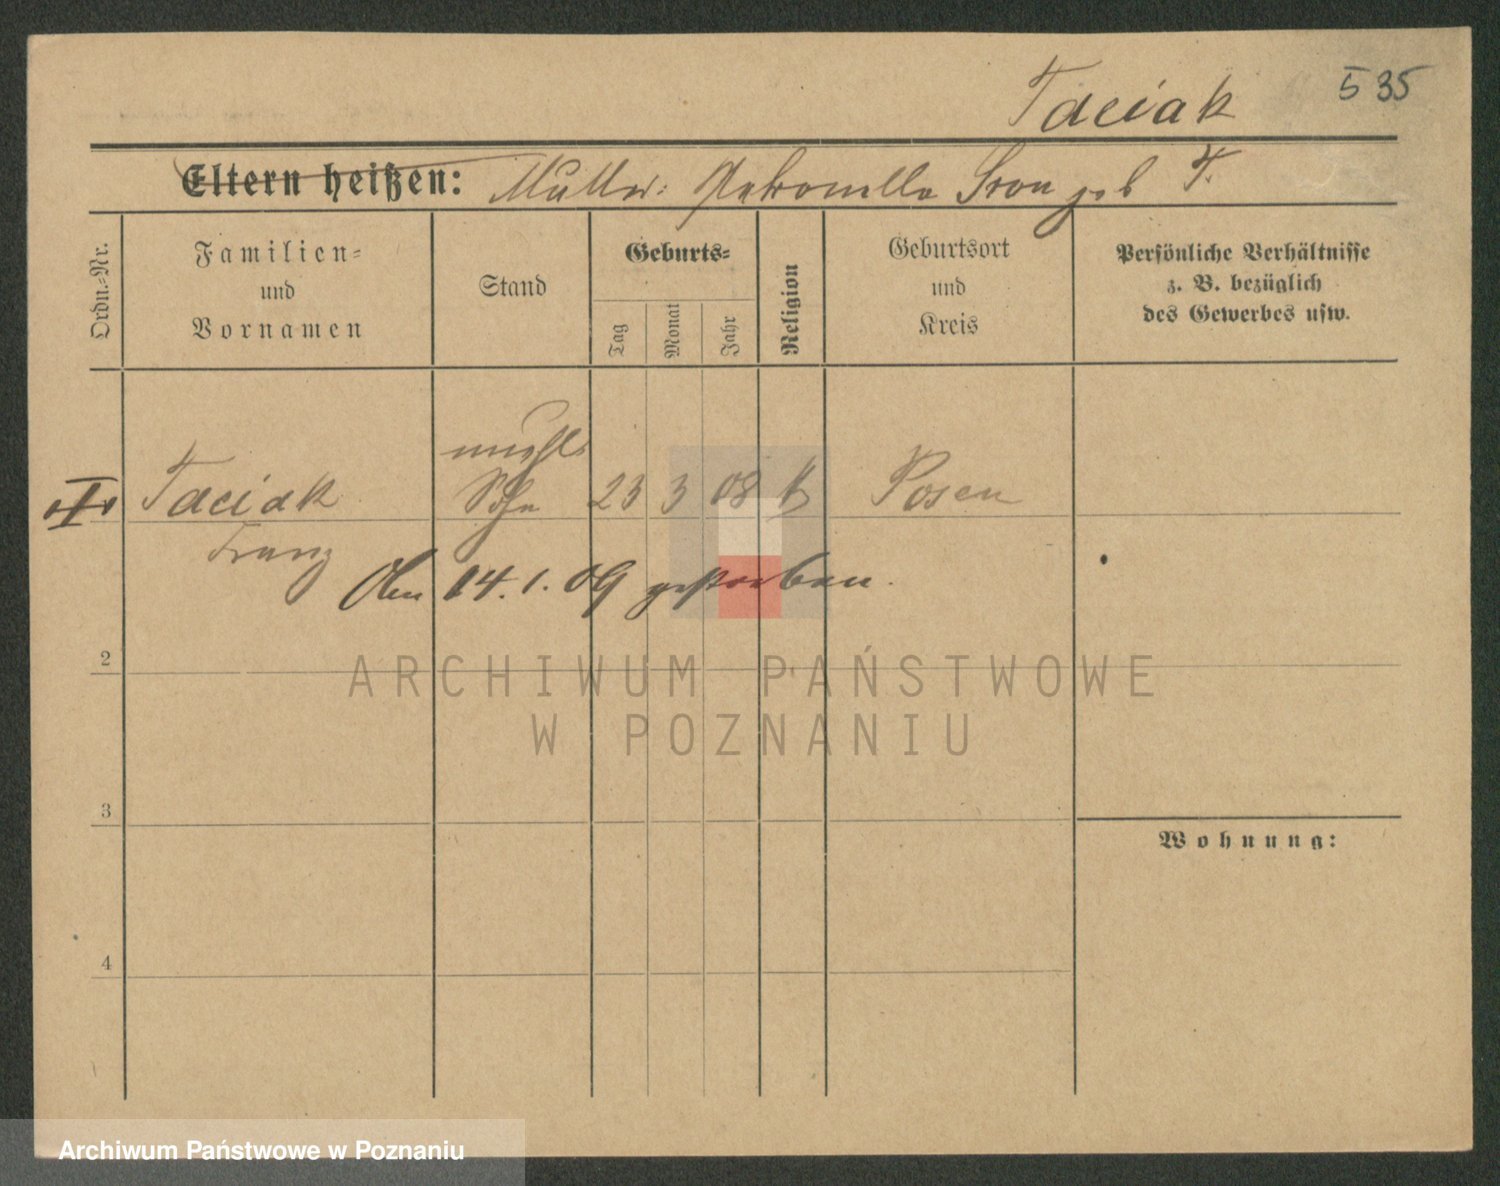 Taciak
535
Eltern heißen: Mutter: Petronella Sron geb T.
Ordn.-Nr.
Familien-
und
Vornamen
Stand
Geburts-
Tag
Monat
Jahr
Religion
Geburtsort
und
Kreis
Persönliche Verhältnisse
z. B. bezüglich
des Gewerbes usw.
unehl.
Taciak Sohn 23 3 08 k Posen
Franz
Am 14.1.09 gestorben.
2
3
4
Wohnung:
ARCHIWUM PAŃSTWOWE
W POZNANIU
Archiwum Państwowe w Poznaniu